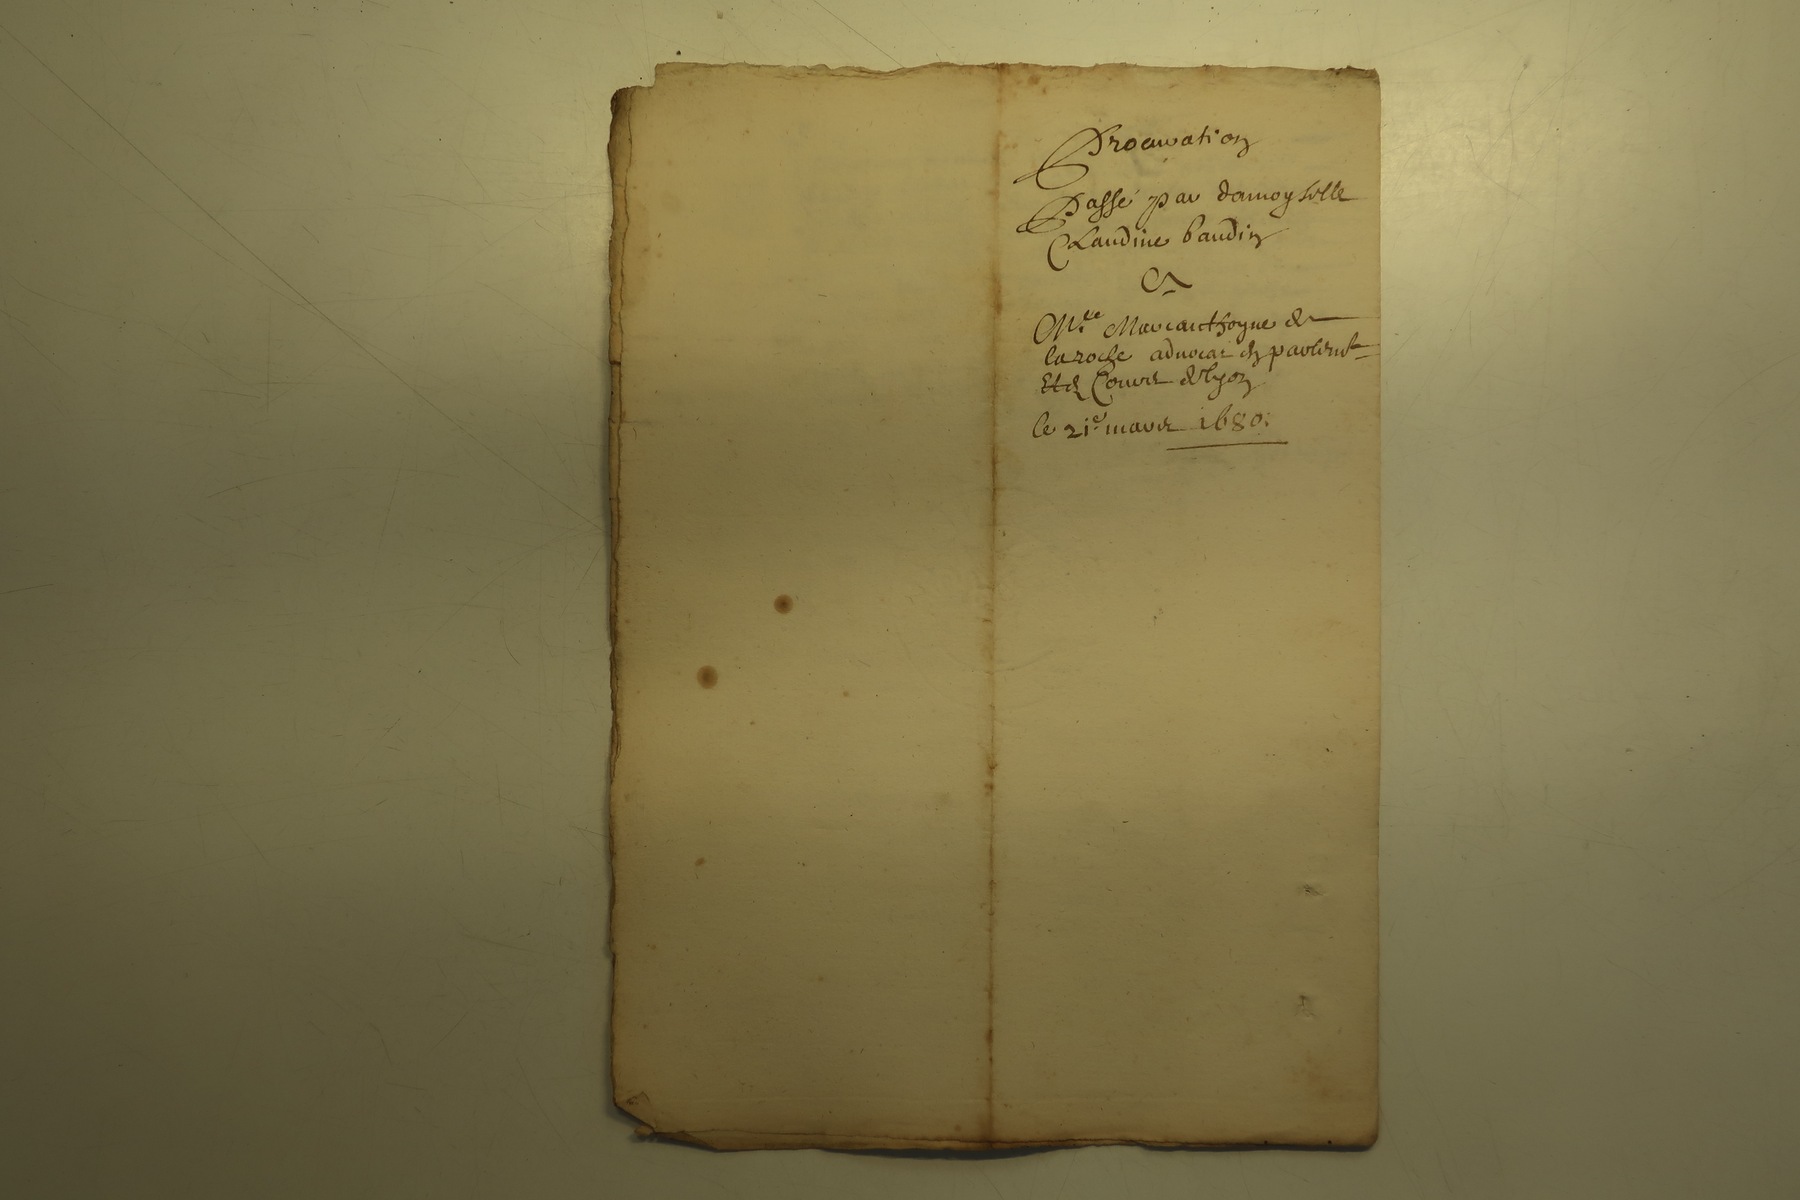 Procuration
Passé par damoyselle
Claudine baudin
A
Mre Marcanthoyne de
laroche advocat en parlemt
Et es Cours de lyon
le 21e mars 1680.